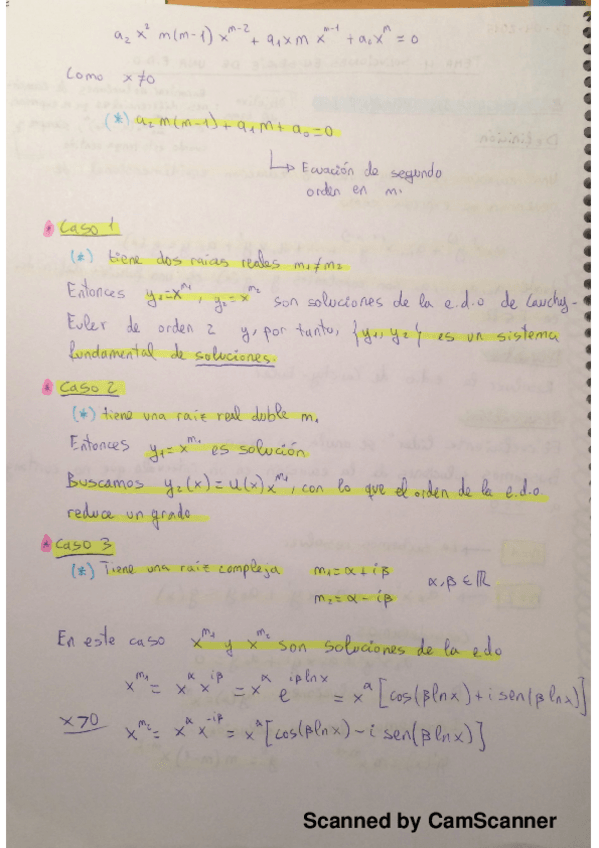 a₂ x² m(m-1) x^{m-2} + a₁ x m x^{m-1} + a₀ x^m = 0
Como x≠0
(*) a₂ m(m-1) + a₁ m + a₀ = 0
↳ Ecuación de segundo
orden en m.
* Caso 1
(*) tiene dos raices reales m₁≠m₂
Entonces y₁=x^{m₁}, y₂=x^{m₂} son soluciones de la e.d.o de Cauchy-
Euler de orden 2 y, por tanto, {y₁, y₂} es un sistema
fundamental de soluciones.
* Caso 2
(*) tiene una raiz real doble m₁
Entonces y₁=x^{m₁} es solución
Buscamos y₂(x)=u(x)x^{m₁}, con lo que el orden de la e.d.o.
reduce un grado
* Caso 3
(*) Tiene una raiz compleja m₁=α+iβ
m₂=α-iβ α,β∈ℝ
En este caso x^{m₁} y x^{m₂} son soluciones de la edo
x^{m₁} = x^α x^{iβ} = x^α e^{iβlnx} = x^α [cos(βlnx)+i sen(βlnx)]
x>0 x^{m₂} = x^α x^{-iβ} = x^α [cos(βlnx)-i sen(βlnx)]
Scanned by CamScanner